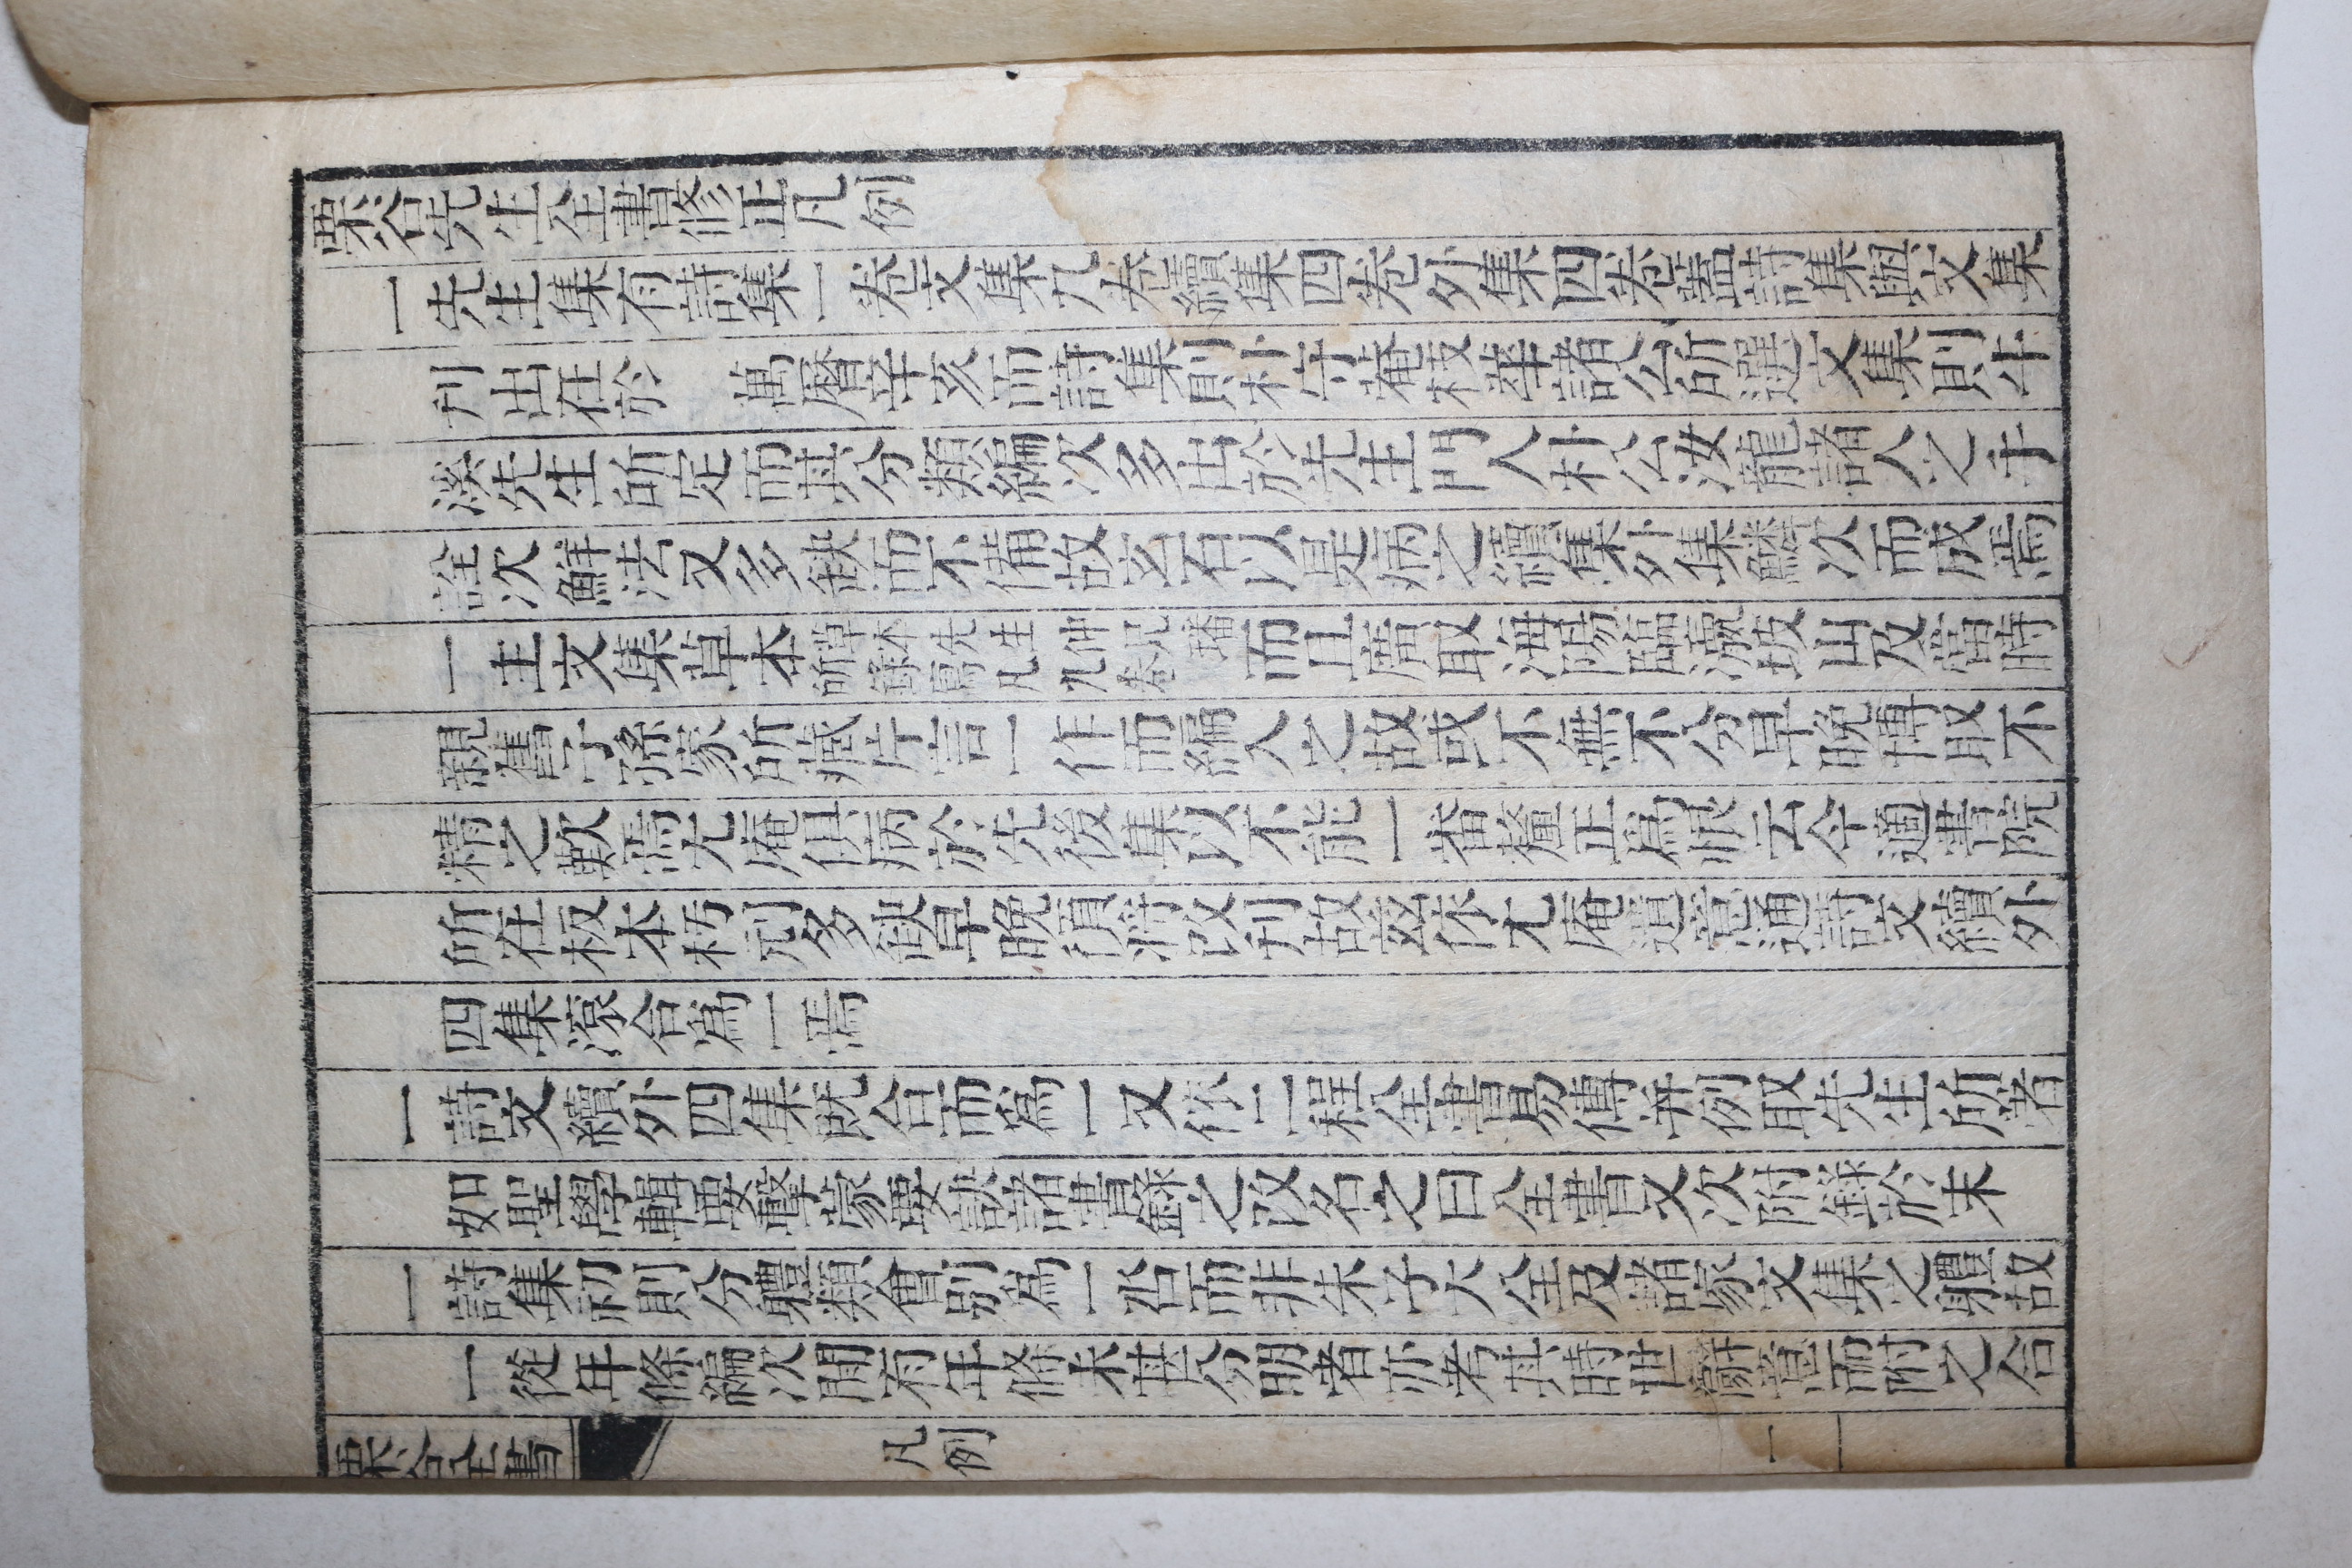 栗谷先生全書修正凡例
一先生集有詩集一卷文集九卷續集四卷外集四卷蓋詩集與文集
刊出在於　萬曆辛亥而詩集則朴守菴枝華諸公所選文集則牛
溪先生所定而其分類編次多出於先生門人朴公汝龍諸人之手
詮次鮮法又多缺而不備故玄石以是病之續集外集鱗次而成焉
一主文集草本草本先生仲兄璠所錄寫凡九卷而且廣取海陽臨瀛坡山及當時
親舊子孫家所藏片言一作而編入之故或不無不分早晩博取不
精之歎焉尤庵俱病於先後集以不能一番釐正爲恨云今適書院
所在板本朽刓多缺早晩須將改刊故玆依尤庵遺意通詩文續外
四集滾合爲一焉
一詩文續外四集既合而爲一又依二程全書易傳幷例取先生所著
如聖學輯要擊蒙要訣諸書錄之改名之曰全書又次附錄於末
一詩集初則分體類會別爲一沓而非朱子大全及諸家文集之體故
一從年條編次間有年條未甚分明者亦考其時世辭意而附之合
栗谷全書　凡例　一